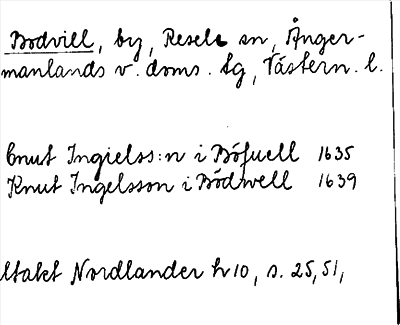 Bodvill, by, Resele sn, Ånger-
manlands v. doms. tg, Västern. l.
Cnut Ingielss:n i Böfuell 1635
Knut Ingelsson i Bödwell 1639
Utakt Nordlander h 10, s. 25, 51,